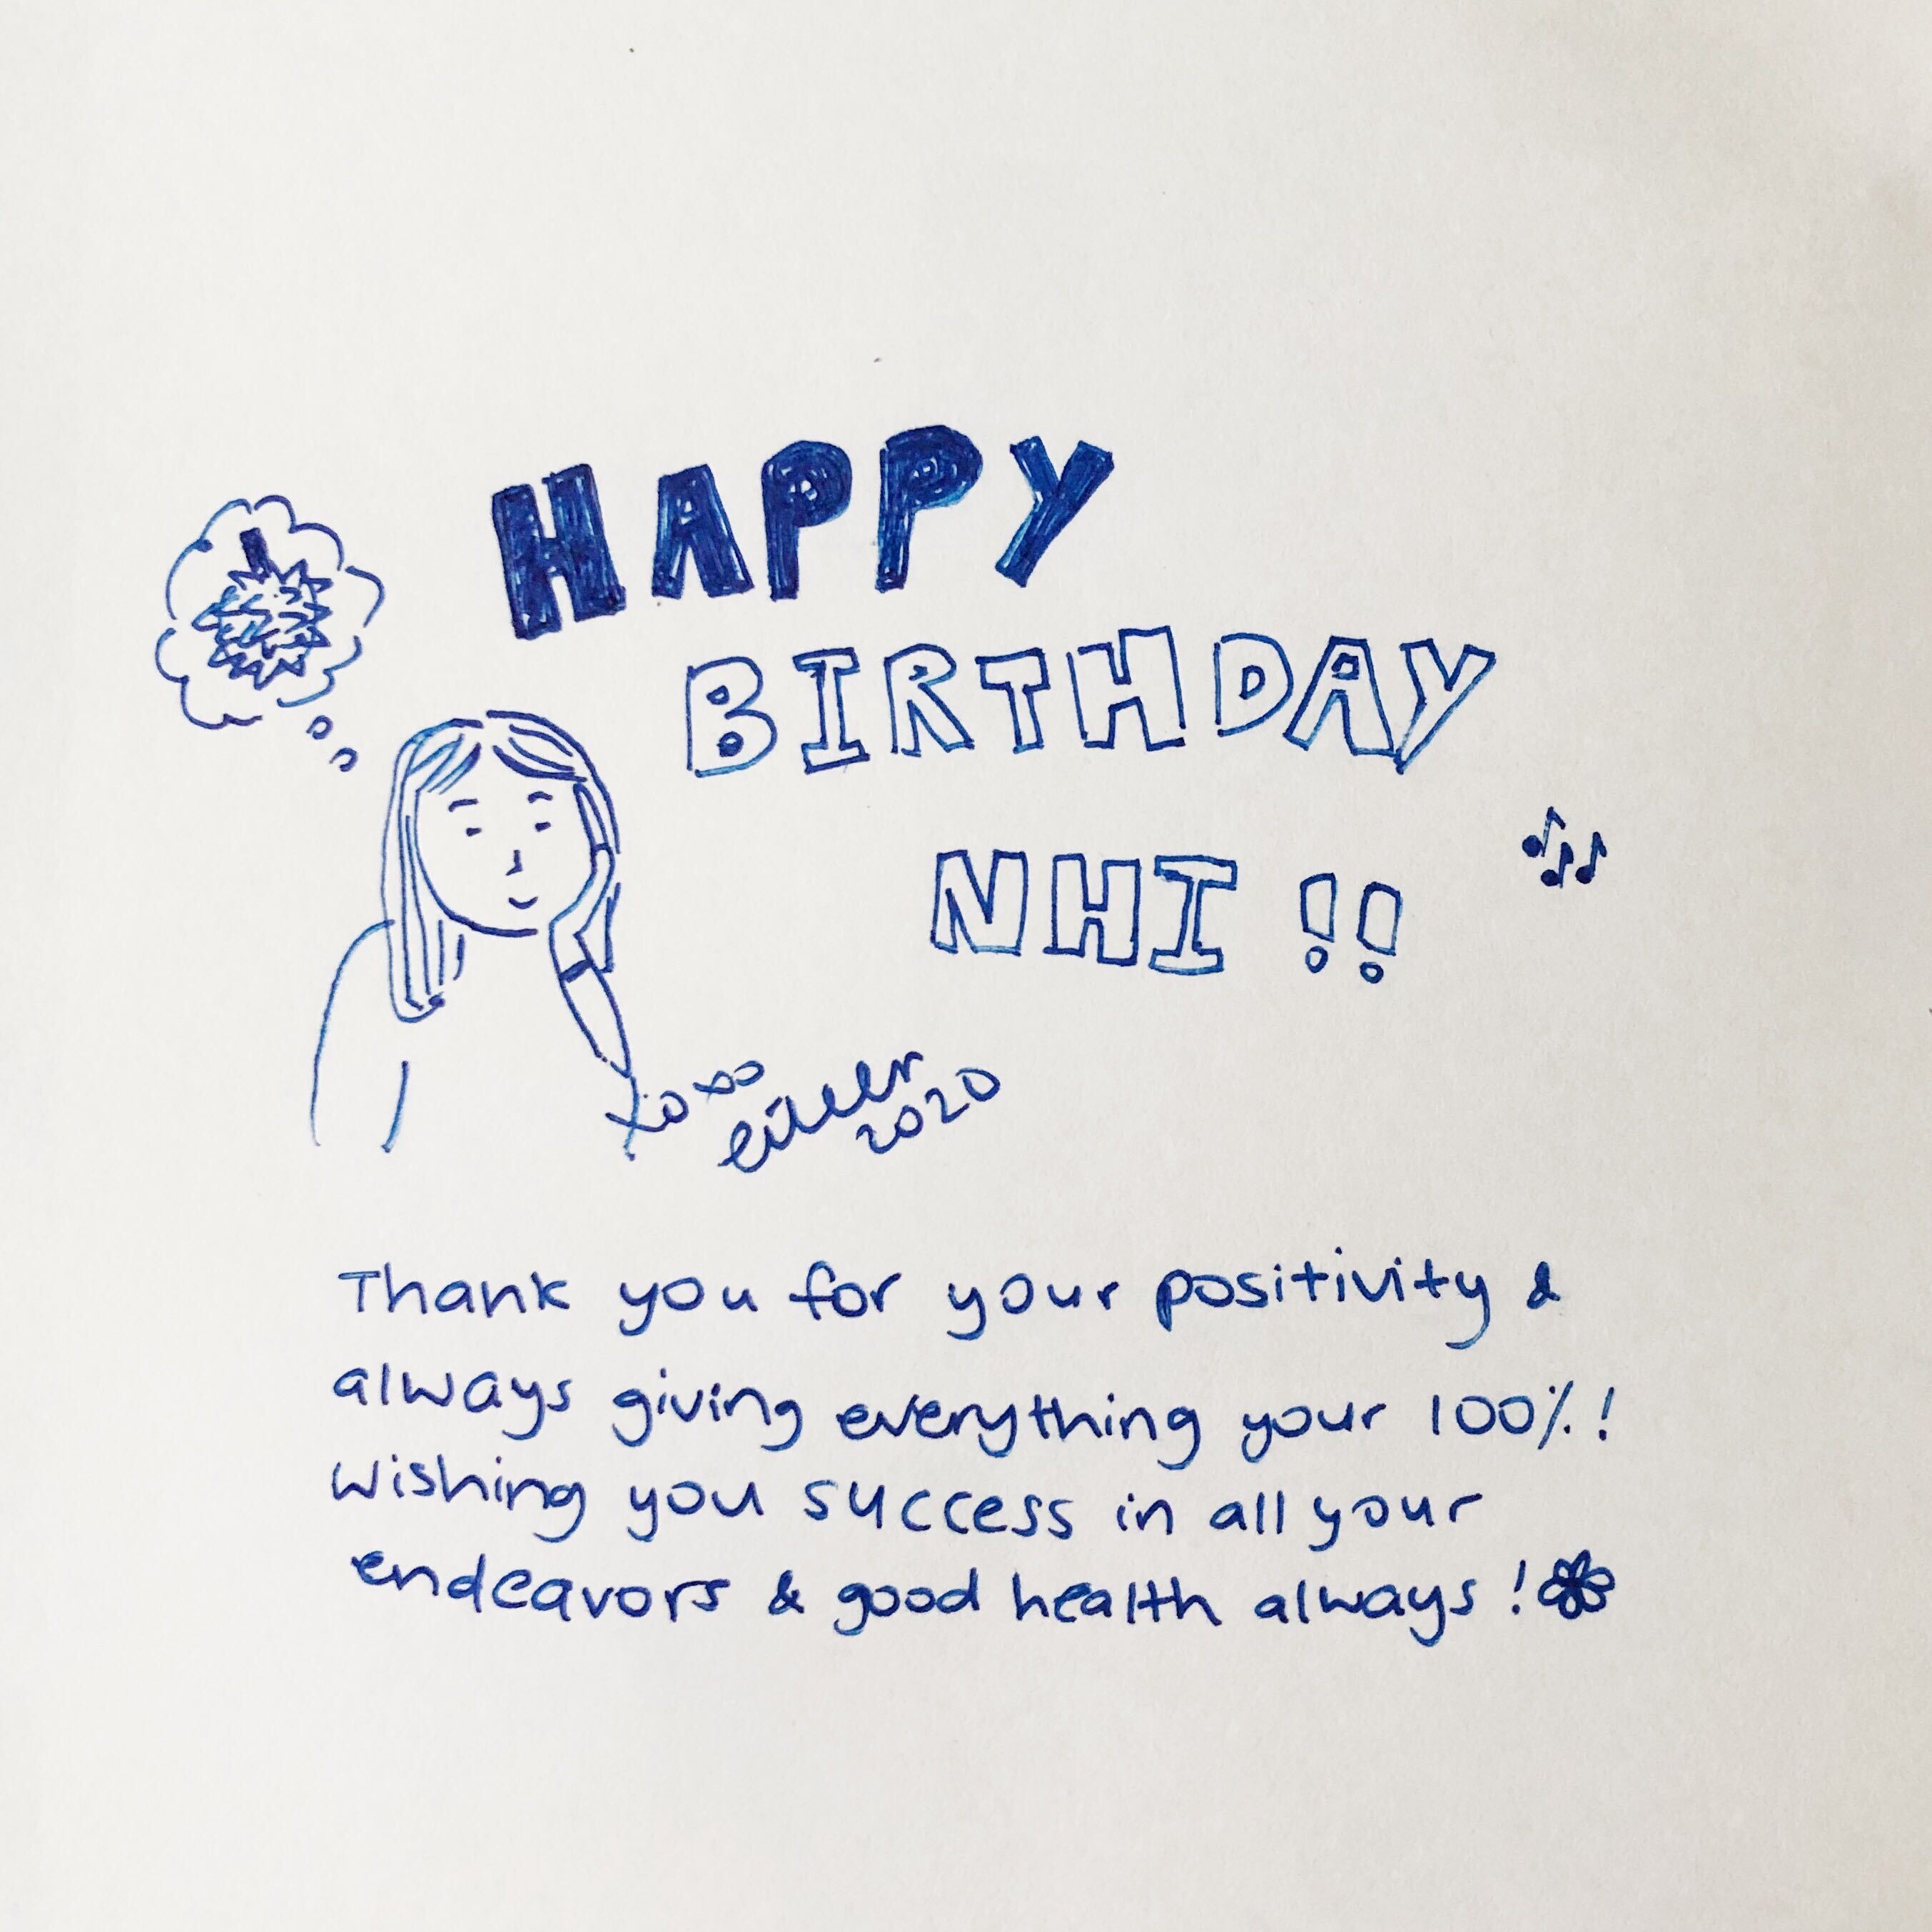 HAPPY
BIRTHDAY
NHI !!
xoxo
2020
Thank you for your positivity &
always giving everything your 100%!
Wishing you success in all your
endeavors & good health always!